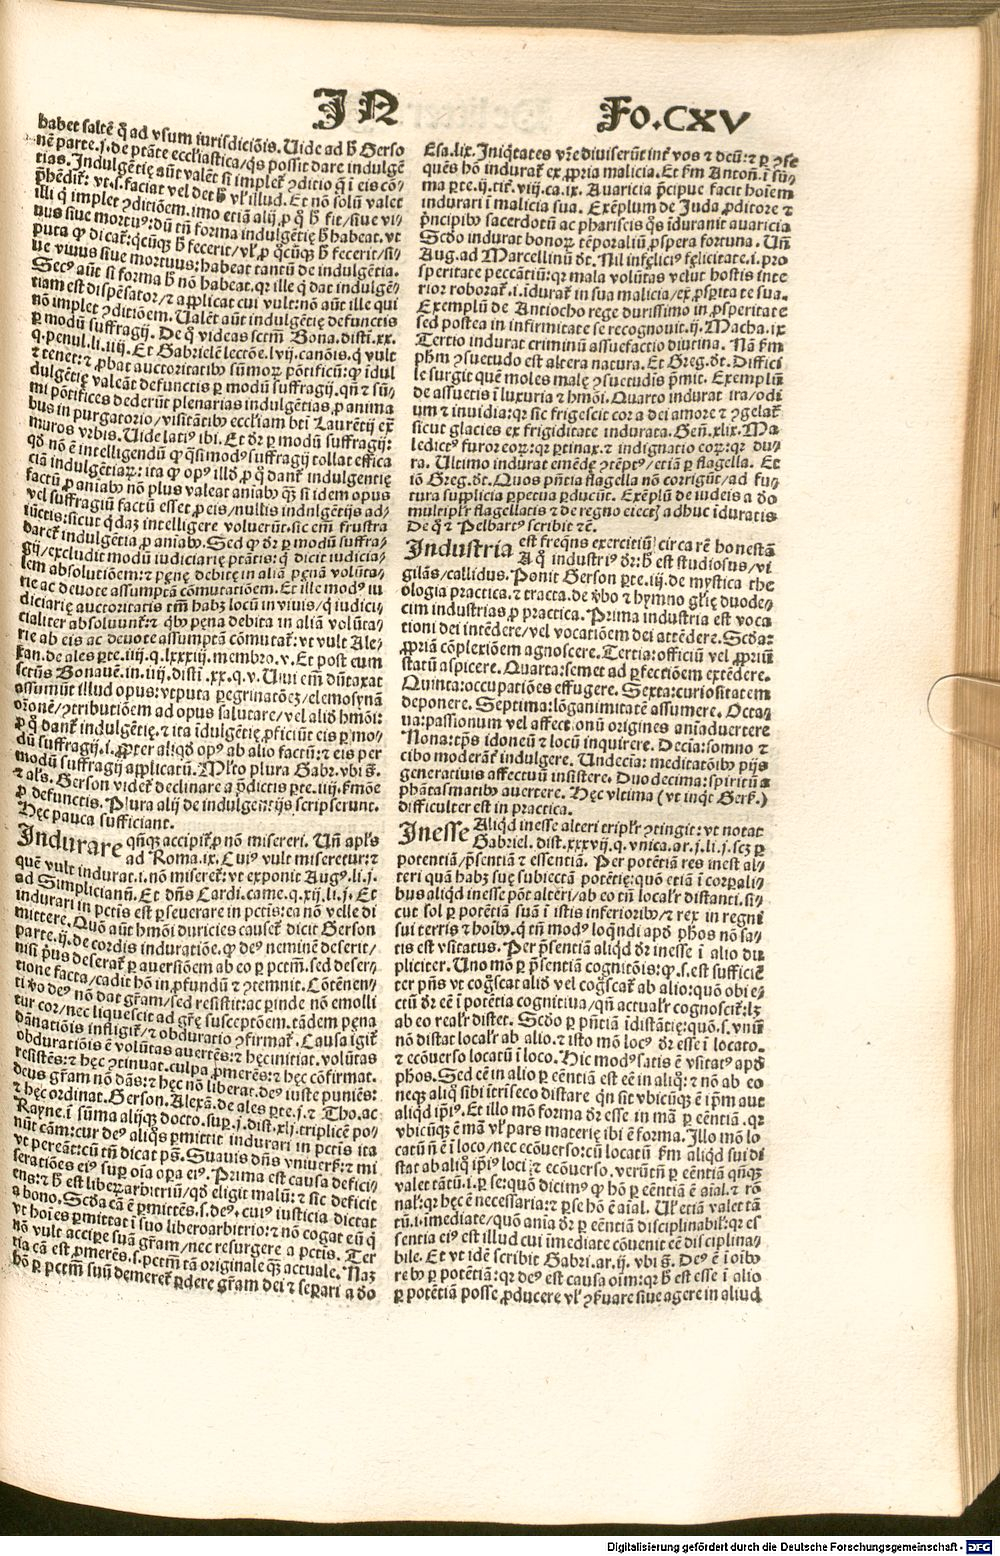 IN
Fo.CXV
habet saltē q̄ ad vsum iurisdiciōis. Uide ad h̄ Gerso
nē parte.j. de ptāte eccl'iastica/qs possit dare indulgē
tias. Indulgētię aūt valēt si implet᷑ ꝯditio q̄ ī eis cō-
p̄hēdit᷑: vt.s. faciat vel det h̄ vl' illud. Et nō solū valēt
illi q̄ implet ꝯditiōem. imo etiā alij ꝓ q̄ h̄ fit/siue vi-
uus siue mortuꝰ: dū tn̄ forma indulgētię h̄ habeat. vt
puta ꝙ dicat᷑: q̄cūqꝫ h̄ fecerit/vl' ꝓ q̄cūqꝫ h̄ fecerit/si-
ue viuus siue mortuus: habeat tantū de indulgētia.
Secꝰ aūt si forma h̄ nō habeat. qr ille q̄ dat indulgē-
tiam est dispēsator/⁊ applicat cui vult: nō aūt ille qui
nō implet ꝯditiōem. Ualēt aūt indulgētię defunctis
ꝑ modū suffragij. De q̄ videas sctm̄ Bona. disti.xx.
q. penul.li.iiij. Et Gabrielē lectōe.lvij. canōis. q̄ vult
⁊ tenet: ⁊ ꝓbat auctoritatibꝰ sūmoꝝ pōtificū: ꝙ īdul
dulgētię valeāt defunctis ꝑ modū suffragij. qn̄ ⁊ sū-
mi pōtifices dederūt plenarias indulgētias ꝓ anima
bus in purgatorio/visitātibꝰ eccl'iam bti Laurētij ex̄
muros vrbis. Uide latiꝰ ibi. Et dr̄ ꝑ modū suffragij:
qd̄ nō ē intelligendū ꝙ q̄simodꝰ suffragij tollat effica
ciā indulgētiaꝝ: ita ꝙ opꝰ illd̄ ꝓ q̄ dant᷑ indulgentię
factū ꝓ aniabꝰ nō plus valeat aniabꝰ q̄ꝫ si idem opus
vel suffragiū factū esset ꝓ eis/nullis indnlgētijs ad-
iūctis: sicut q̄daꝫ intelligere voluerūt. sic em̄ frustra
daret᷑ indulgētia ꝓ aniabꝰ. Sed ꝙ dr̄ ꝑ modū suffra-
gij/excludit modū iudiciarię ptātis: q̄ dicit iudicia-
lem absolutiōem: ⁊ pęnę debitę in aliā pęnā volūta-
rie ac deuote assumptā cōmutatiōem. Et ille modꝰ iu
diciarię auctoritatis tm̄ habꝫ locū in viuis/q̄ iudici-
cialiter absoluunt᷑: ⁊ qͥbꝰ pęna debita in aliā volūta-
rie ab eis ac deuote assumptā cōmutat᷑: vt vult Ale-
xan. de ales ꝑte.iiij.q.lxxxiij. membro.v. Et post eum
sctūs Bonauē.in.iiij. disti.xx.q.v. Uiui em̄ dūtaxat
assumūt illud opus: vtputa ꝑegrinatōeꝫ/elemosynā
or̄onē/ꝯtributiōem ad opus salutare/vel aliō hmōi:
ꝓ q̄ dant᷑ indulgētię. ⁊ ita īdulgētię ꝓficiūt eis ꝑ mo-
dū suffragij.i. ꝓpter aliqd̄ opꝰ ab alio factū: ⁊ eis per
modū suffragij applicatū. Ml'to plura Gabr. vbi s̄.
⁊ al's. Gerson videt᷑ declinare a p̄dictis ꝑte.iiij. ẜmōe
ꝓ defunctis. Plura alij de indulgentijs scripserunt.
Hęc pauca sufficiant.
Indurare qn̄qꝫ accipit᷑ ꝓ nō misereri. Un̄ apl's
ad Roma.ix. Cuiꝰ vult miseretur: ⁊
quē vult indurat.i. nō miseret᷑: vt exponit Augꝰ.li.j.
ad Simplicianū. Et dn̄s Cardi.came.q.xij.li.j. Et
indurari in pctīs est ꝑseuerare in pctīs: ea nō velle di
mittere. Quō aūt hmōi duricies causet᷑ dicit Gerson
parte.ij. de cordis induratiōe. ꝙ deꝰ neminē deserit/
nisi p̄us deserat᷑ ꝑ auersiōem ab eo ꝑ pctm̄. sed deser-
tione facta/cadit hō in ꝓfundū ⁊ ꝯtemnit. Cōtēnen-
ti v̄o deꝰ nō dat gr̄am/sed resistit: ac ꝑinde nō emolli
tur cor/nec liquescit ad gr̄ę susceptōem. tādem pęna
dānatiōis infligit᷑/⁊ obduratio ꝯfirmat᷑. Causa igit᷑
obduratiōis ē volūtas auertēs: ⁊ hęc initiat. volūtas
resistēs: ⁊ hęc ꝯtinuat. culpa ꝓmerēs: ⁊ hęc cōfirmat.
deus gr̄am nō dās: ⁊ hęc nō liberat. deꝰ iuste puniēs:
⁊ hęc ordinat. Gerson. Alexā. de ales ꝑte.j. ⁊ Tho. ac
Rayne.ī sūma alijqꝫ docto. suꝑ.j. dist.xlj. triplicē po-
nūt cām: cur deꝰ aliq̄s ꝑmittit indurari in pctīs ita
vt pereāt: cū tn̄ dicat ps̄. Suauis dn̄s vniuerẜ: ⁊ mi
seratiōes eiꝰ suꝑ oīa oꝑa eiꝰ. Prima est causa defici-
ens: ⁊ h̄ est liberꝝarbitriū/qd̄ eligit malū: ⁊ sic deficit
a bono. Scd̄a cā ē ꝑmittēs.s. deꝰ. cuiꝰ iusticia dictat
vt hoīes ꝑmittat ī suo liberoarbitrio: ⁊ nō cogat eū q̄
nō vult accipe suā gr̄am/nec resurgere a pctīs. Ter
tia cā est ꝓmerēs.s. pctm̄ tā originale qꝫ actuale. Naꝫ
hō ꝑ pctm̄ suū demeret᷑ ꝑdere gr̄am dei ⁊ seꝑari a d̄o
Esa.lix. Iniq̄tates vr̄e diuiserūt int᷑ vos ⁊ deū: ⁊ ꝑ ꝯse
quēs hō indurat᷑ ex ꝓpria malicia. Et ẜm Antoñ. ī sū-
ma ꝑte.ij. tit᷑. viij.ca.ix. Auaricia p̄cipue facit hoīem
indurari ī malicia sua. Exēplum de Iuda ꝓditore ⁊
p̄ncipibꝰ sacerdotū ac phariseis q̄s īdurauit auaricia
Scd̄o indurat bonoꝝ tēporaliū ꝓspera fortuna. Un̄
Aug. ad Marcellinū d̄t. Nil infęliciꝰ fęlicitate.i. pro
speritate peccātiū: qr mala volūtas velut hostis inte
rior roborat᷑.i. īdurat᷑ in sua malicia/ex ꝓsꝑitate sua.
Exemplū de Antiocho rege durissimo in ꝓsperitate
sed postea in infirmitate se recognouit.ij. Macha.ix
Tertio indurat criminū assuefactio diutina. Nā ẜm
ph̄m ꝯsuetudo est altera natura. Et Greg. d̄t. Diffici
le surgit quē moles malę ꝯsuetudis p̄mit. Exemplū
de assuetis ī luxuria ⁊ hmōi. Quarto indurat ira/odi
um ⁊ inuidia: qr sic frigescit cor a dei amore ⁊ ꝯgelat᷑
sicut glacies ex frigiditate indurata. Geñ.xlix. Ma-
ledictꝰ furor eoꝝ: qr ꝑtinax. ⁊ indignatio eoꝝ: qr du-
ra. Ultimo indurat emēdę ꝯtēptꝰ/etiā ꝑ flagella. Et
iō Greg. d̄t. Quos pn̄tia flagella nō corrigūt/ad fu-
tura supplicia ꝑpetua ꝑducūt. Exēplū de iudeis a d̄o
multipl'r flagellatis ⁊ de regno eiectꝫ adhuc īduratis
De q̄ ⁊ Pelbartꝰ scribit ⁊c̄.
Industria est freqn̄s exercitiū circa rē honestā
A q̄ industriꝰ dr̄: h̄ est studiosus/vi
gilās/callidus. Ponit Gerson ꝑte.iij. de mystica the
ologia practica. ⁊ tracta. de v̄bo ⁊ hymno gl'ię duode-
cim industrias ꝓ practica. Prima industria est voca
tioni dei intēdere/vel vocatiōem dei attēdere. Scd̄a:
ꝓpriā cōplexiōem agnoscere. Tertia: officiū vel ꝓpriū
statū aspicere. Quarta: semet ad ꝑfectiōem extēdere.
Quinta: occupatiōes effugere. Sexta: curiositatem
deponere. Septima: lōganimitatē assumere. Octa-
ua: passionum vel affectionū origines aīaduertere
Nona: tp̄s idoneū ⁊ locū inquirere. Decīa: somno ⁊
cibo moderāt᷑ indulgere. Undecīa: meditatōibꝰ pijs
generatiuis affectuū insistere. Duodecima: spiritū a
phātasmatibꝰ auertere. Hęc vltima (vt inq̄t Gerẜ.)
difficulter est in practica.
Inesse Aliqd̄ inesse alteri tripl'r ꝯtingit: vt notat
Gabriel. dist.xxxvij.q. vnica.ar.j.li.j. scꝫ ꝑ
potentiā/p̄sentiā ⁊ essentiā. Per potētiā res inest al-
teri quā habꝫ suę subiectā potētię: quō etiā ī corꝑali-
bus aliqd̄ inesse pōt alteri/ab eo tn̄ local'r distanti. si-
cut sol ꝑ potētiā suā ī istis inferioribꝰ/⁊ rex in regni
sui terris ⁊ hoībꝰ. q̄ tn̄ modꝰ loq̄ndi apd̄ phos nō sa-
tis est vsitatus. Per p̄sentiā aliqd̄ dr̄ inesse ī alio du
pliciter. Uno mō ꝑ p̄sentiā cognitōis: ꝙ.s. est sufficiē
ter pn̄s vt coḡscat aliō vel coḡscat᷑ ab alio: quō obie-
ctū dr̄ eē ī potētia cognitiua/qn̄ actual'r cognoscit᷑: lꝫ
ab eo real'r distet. Scd̄o ꝑ pn̄tiā īdistātię: quō.s. vnū
nō distat local'r ab alio. ⁊ isto mō locꝰ dr̄ esse ī locato.
⁊ ecōuerso locatū ī loco. Hic modꝰ satis ē vsitatꝰ apd̄
phos. Sed eē in alio ꝑ eēntiā est eē in aliq̄: ⁊ nō ab eo
neqꝫ aliq̄ sibi ītriseco distare qn̄ sit vbicūqꝫ ē ip̄m aut
aliqd̄ ip̄iꝰ. Et illo mō forma dr̄ esse in mā ꝑ eēntiā. qr
vbicūqꝫ ē mā vl' pars materię ibi ē forma. Illo mō lo
catū n̄ ē ī loco/nec ecōuerso: cū locatū ẜm aliqd̄ sui di
stat ab aliq̄ ip̄iꝰ loci ⁊ ecōuerso. verūtn̄ ꝑ eēntiā qn̄qꝫ
valet tātū.i. ꝑ se: quō dicimꝰ ꝙ hō ꝑ eēntiā ē aīal. ⁊ rō
nal': qr hęc ē necessaria: ⁊ ꝑ se hō ē aīal. Ul' etiā valet tā
tū.i. imediate/quō anīa dr̄ ꝑ eēntiā disciplinabil': qr es
sentia eiꝰ est illud cui īmediate cōuenit eē disciplina-
bile. Et vt idē scribit Gabri.ar.ij. vbi s̄. Deꝰ ē ī oībꝰ
rebꝰ ꝑ potētiā: qr deꝰ est causa oīm: qr h̄ est esse ī alio
ꝑ potētiā posse ꝓducere vl' ꝯẜuare siue agere in aliud
Digitalisierung gefördert durch die Deutsche Forschungsgemeinschaft - DFG